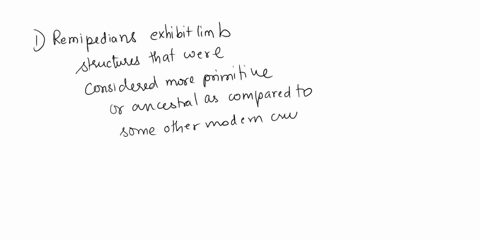 1) Remipedians exhibit limb
structures that were
considered more primitive
or ancestral as compared to
some other modern